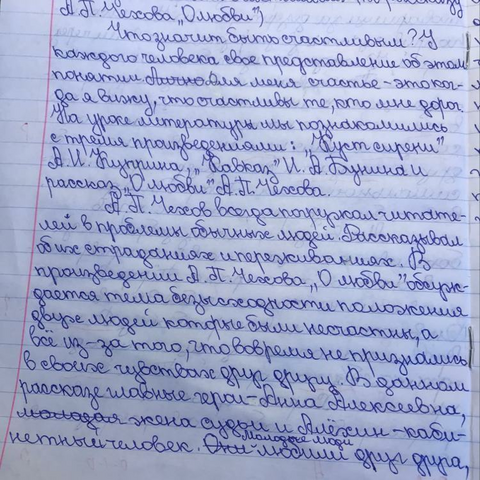 А.П. Чехова „О любви")
Что значит быть счастливым? У
каждого человека свое представление об этом
понятии. Лично для меня счастье - это ког-
да я вижу, что счастливы те, кто мне дорог.
На уроке литературы мы познакомились
с тремя произведениями: „Куст сирени"
А.И. Куприна, „Кавказ" И.А. Бунина и
рассказ „О любви" А.П. Чехова.
А.П. Чехов всегда погружал читате-
лей в проблемы обычных людей. Рассказывал
об их страданиях и переживаниях. В
произведении А.П. Чехова „О любви" обсуж-
дается тема безысходности положения
двух людей которые были несчастны, а
всё из-за того, что вовремя не признались
в своих чувствах друг другу. В данном
рассказе главные герои - Анна Алексеевна,
молодая жена судьи и Алёхин - каби-
нетный человек. Они молодые люди любили друг друга,